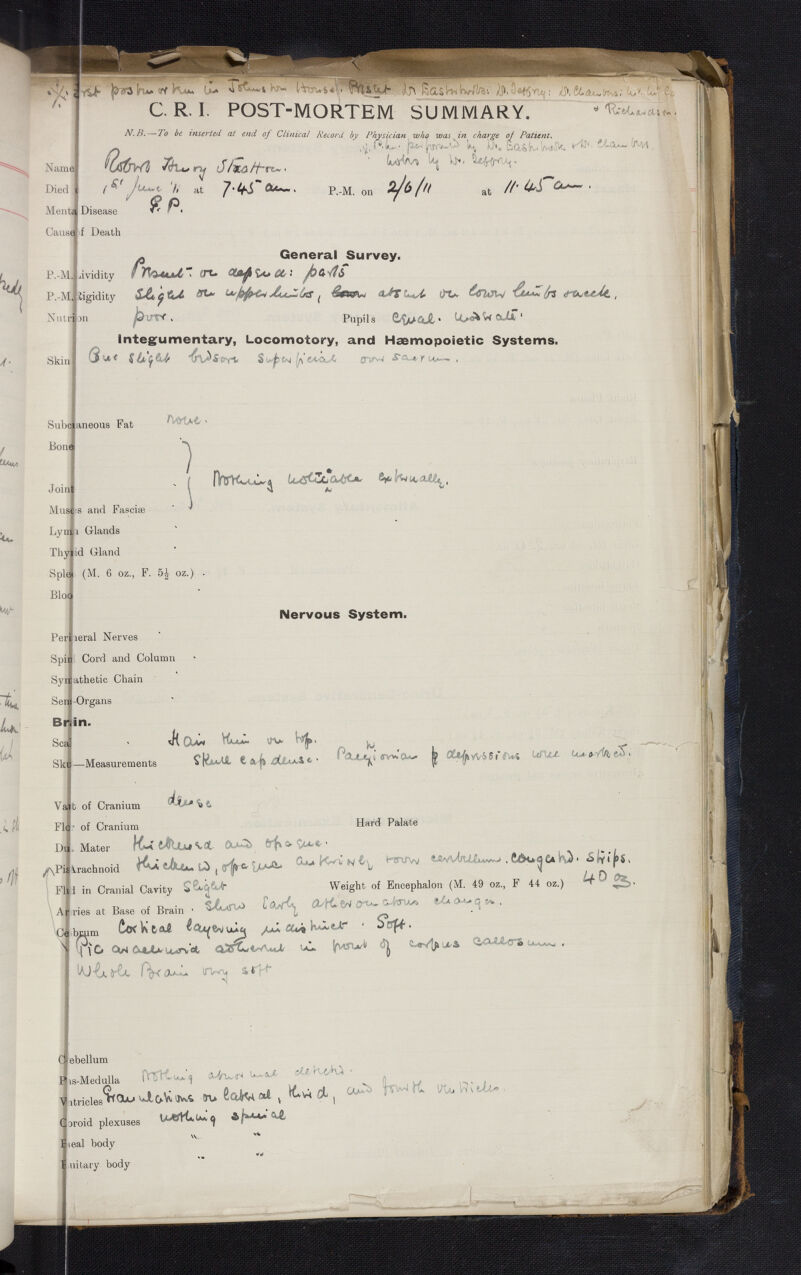 First post mortem in Johnston House. Present Dr Easterbrook:
C. R. I. POST-MORTEM SUMMARY.
& Richardson.
N.B.—To be inserted at end of Clinical Record by Physician who was in charge of Patient.
performed by Dr. Easterbrook
notes by Dr.
Name Robert Henry
Died 1st June 11 at 7.45 am. P.-M. on 2/6/11 at 11.45 am.
Mental Disease G.P.
Cause of Death
General Survey.
P.-M. Lividity Present: on depend: parts
P.-M. Rigidity Slight on upper limbs, absent on lower limbs
Nutrition poor. Pupils Equal. Moderate.
Integumentary, Locomotory, and Hæmopoietic Systems.
Skin One slight bedsore superficial over sacrum.
Subcutaneous Fat none.
Bone
Joint Nothing noticeable externally.
Muscles and Fasciæ
Lymph Glands
Thyroid Gland
Spleen (M. 6 oz., F. 5½ oz.)
Blood
Nervous System.
Peripheral Nerves
Spinal Cord and Column
Sympathetic Chain
Sense-Organs
Brain.
Scalp Hair thin on top.
Skull—Measurements Skull cap dense. Pacchionian depressions well marked.
Vault of Cranium dense
Floor of Cranium Hard Palate
Dura Mater thickened and opaque.
Pia Arachnoid thickened, opaque anteriorly over cerebellum. congested. strips.
Fluid in Cranial Cavity Slight Weight of Encephalon (M. 49 oz., F 44 oz.) 40 oz.
Arteries at Base of Brain Show early atheromatous changes.
Cerebrum Cortical layering indistinct. Soft.
Pia arachnoid adherent in front of corpus callosum.
Whole Brain very soft
Cerebellum
Pons-Medulla Nothing abnormal detected.
Ventricles Granulations on lateral, third, and fourth ventricles.
Choroid plexuses nothing special
Pineal body " "
Pituitary body " "